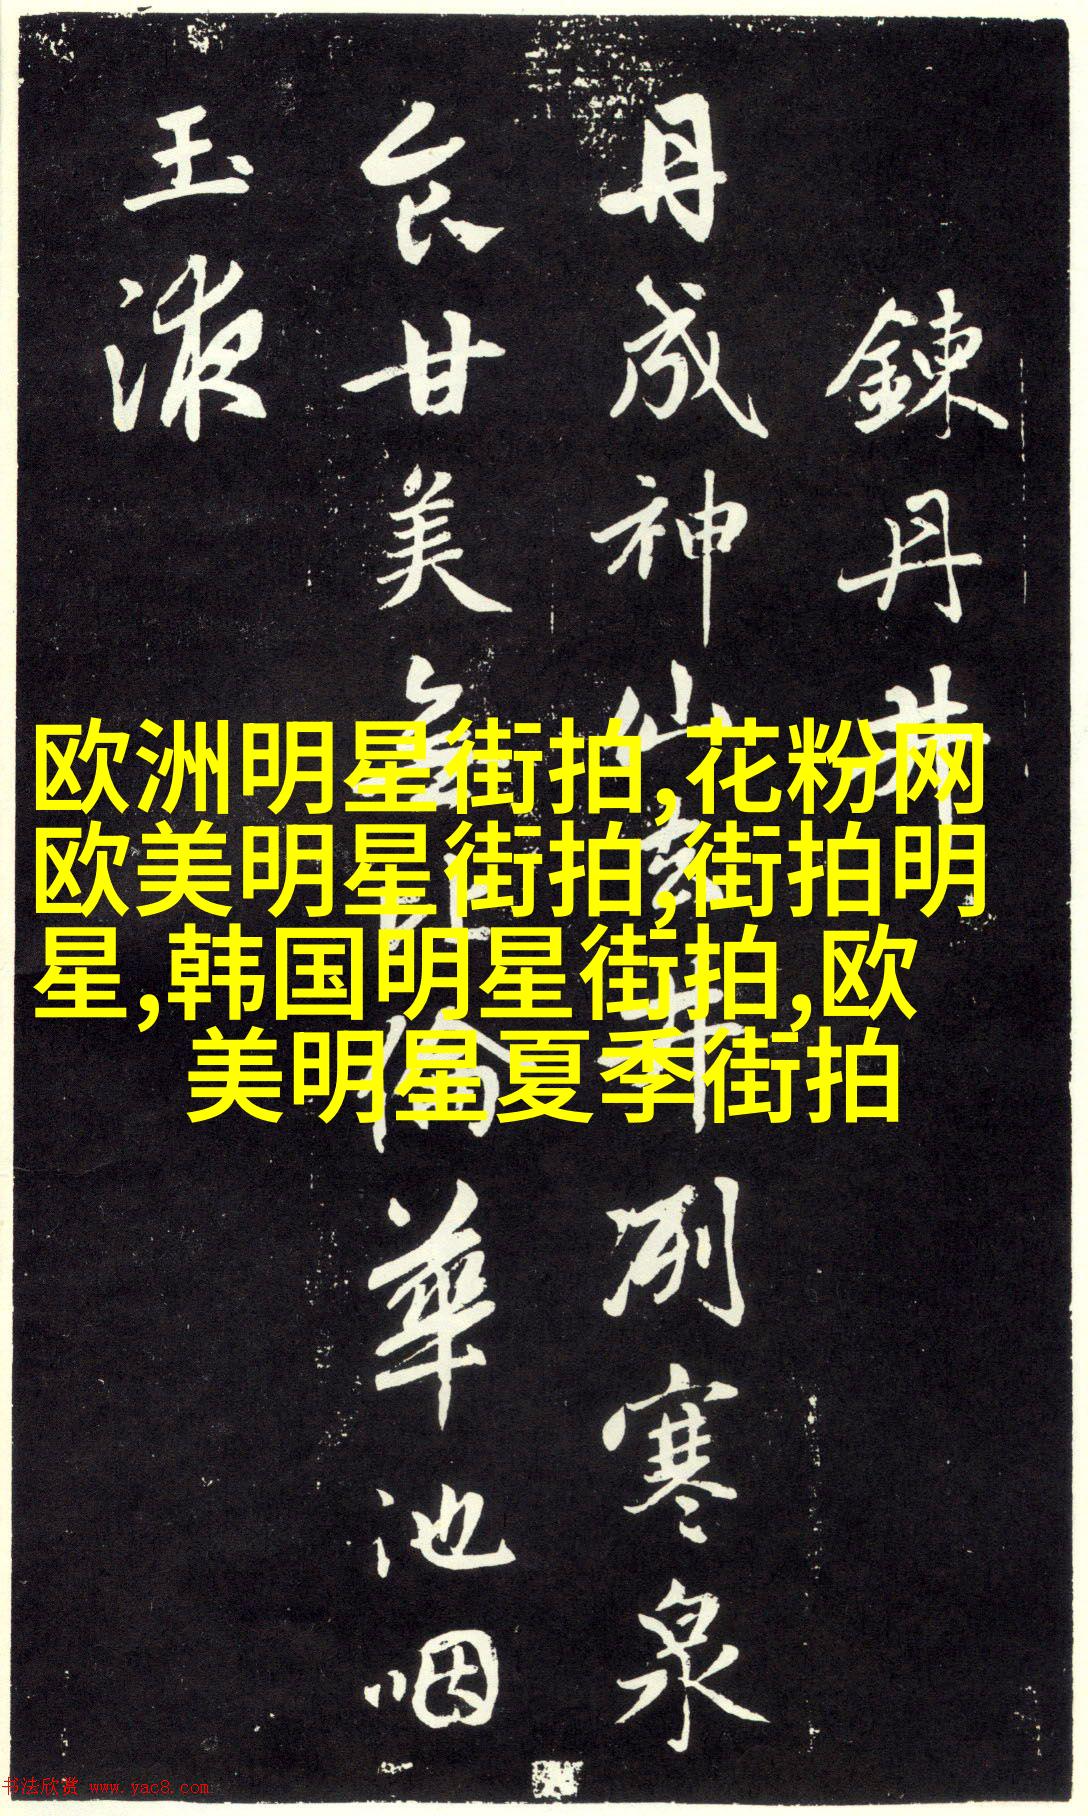 鍊丹井
丹成神仙去井冽寒泉
食甘美無比倫華池咽
玉液
欧洲明星街拍,花粉网
欧美明星街拍,街拍明
星,韩国明星街拍,欧
美明星夏季街拍
书法欣赏 www.yac8.com